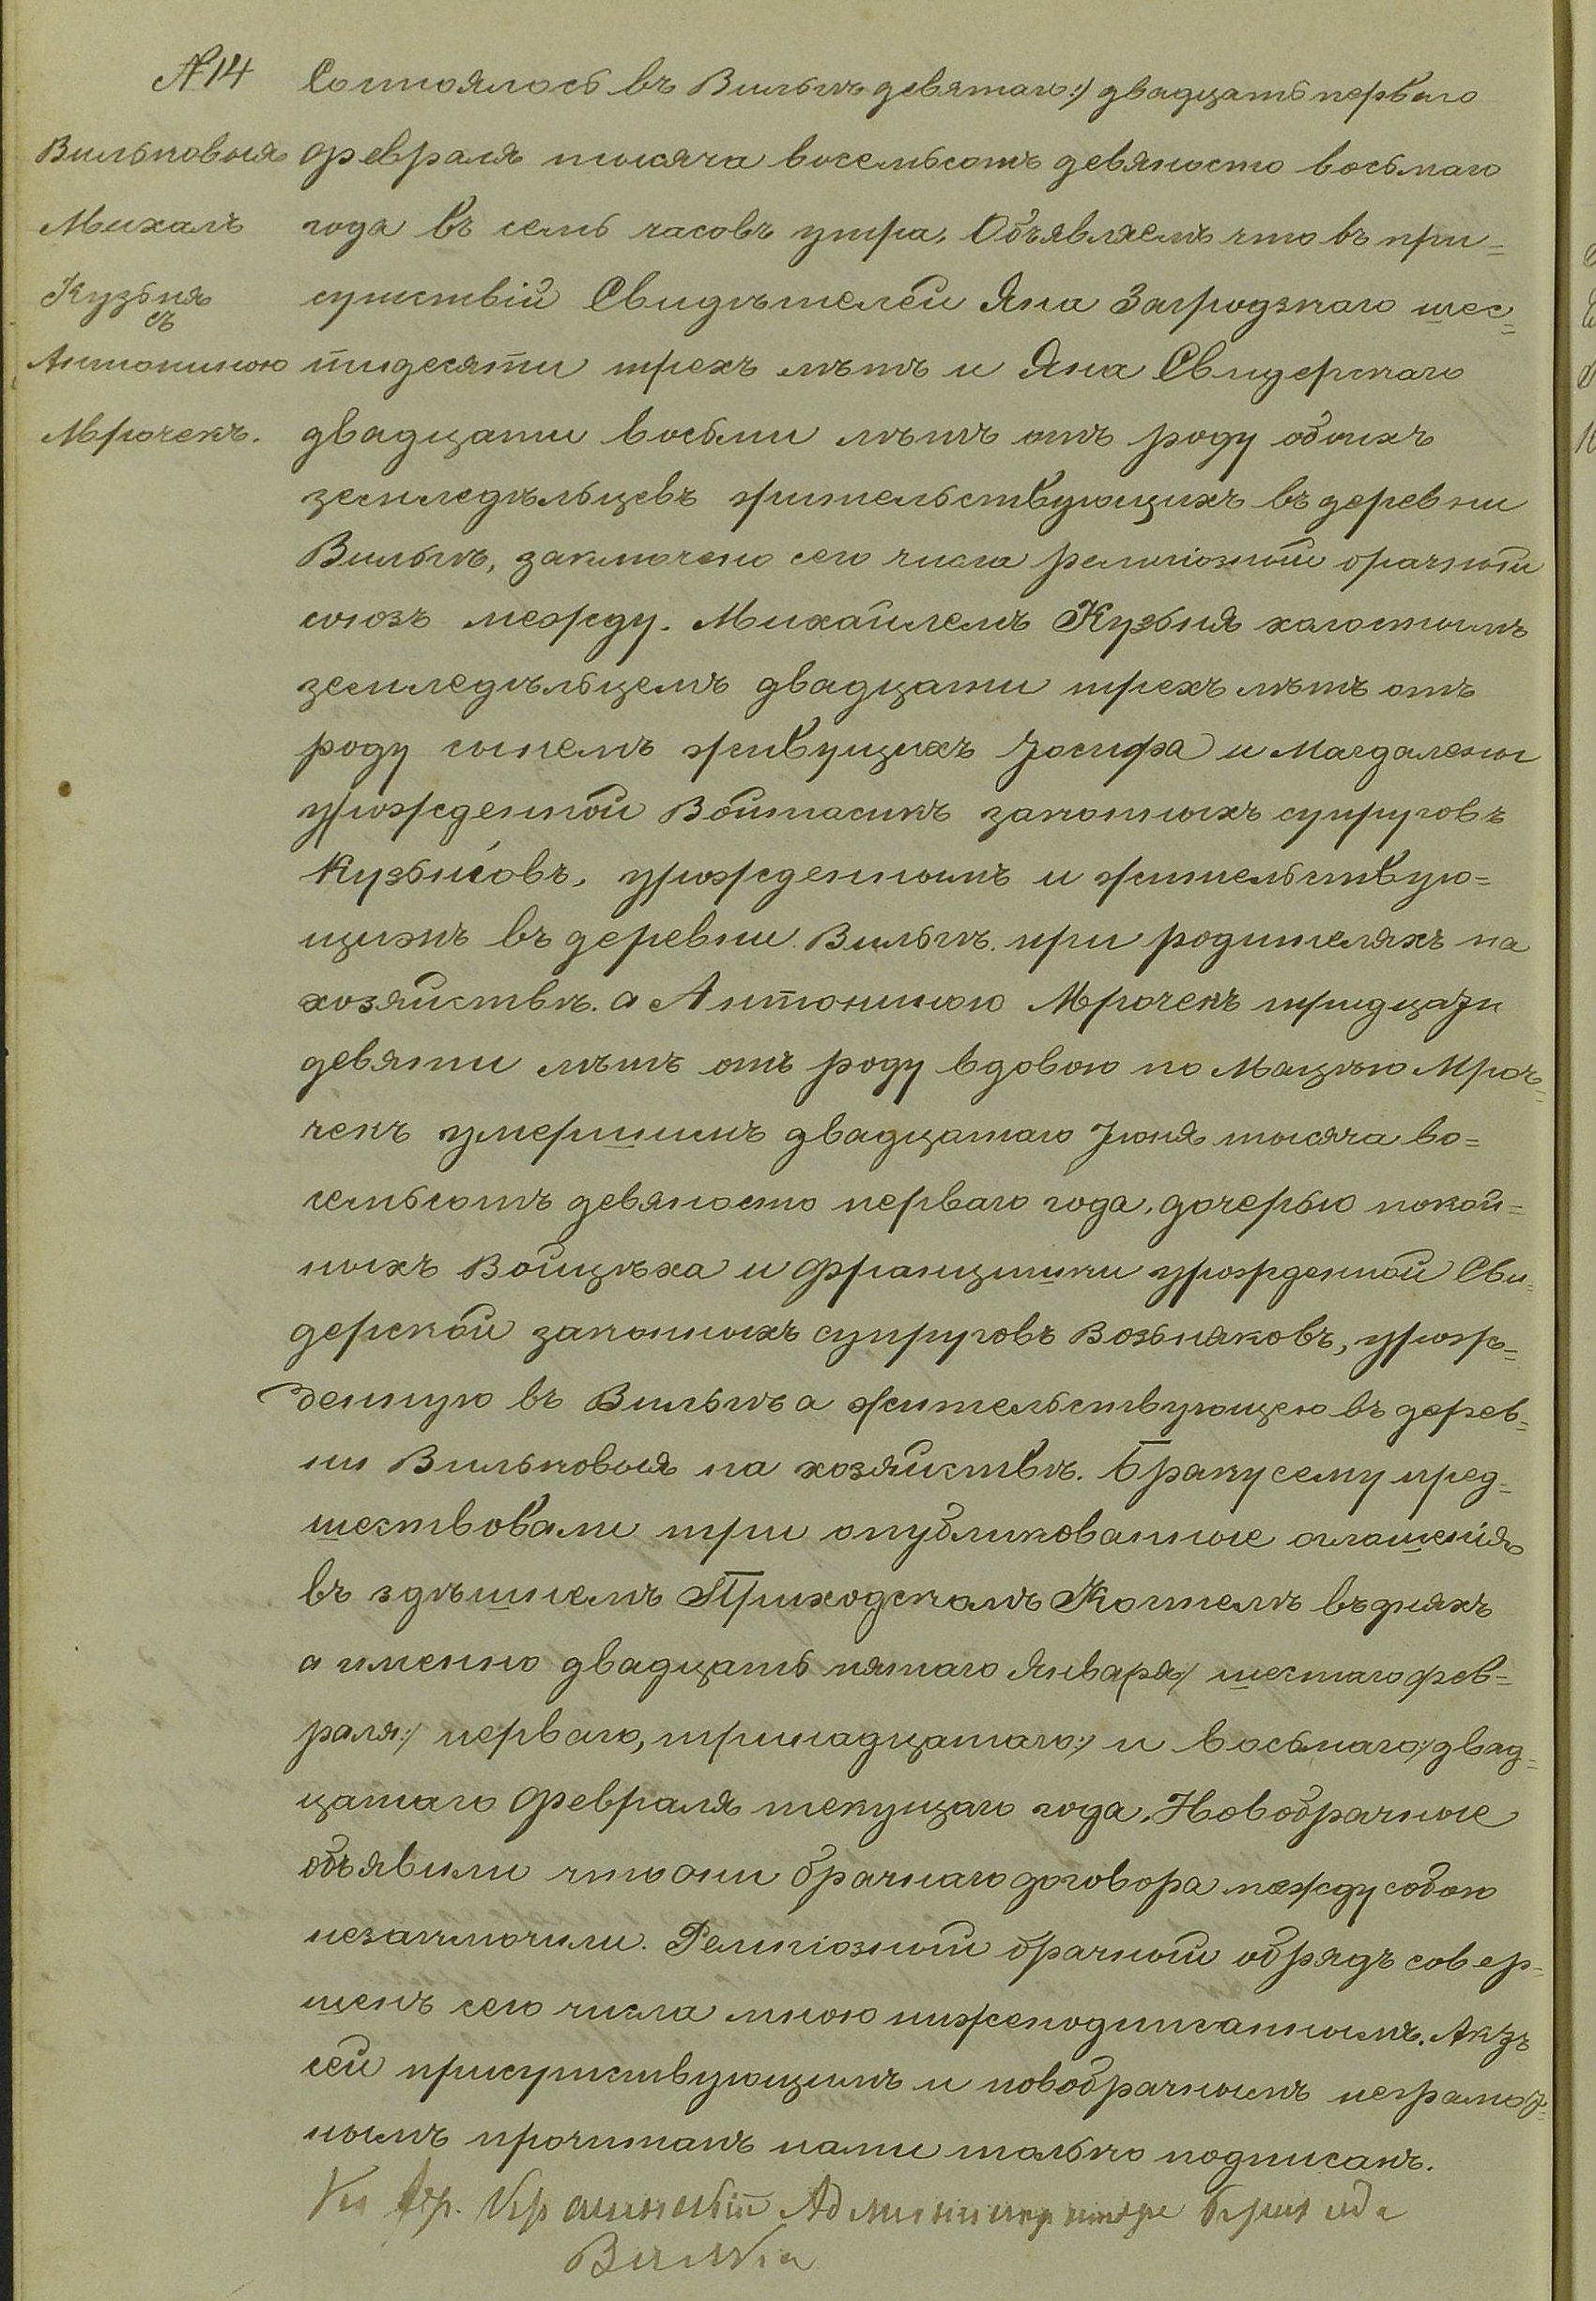 №14
Вильковыя
Михалъ
Кузьня
съ
Антониною
Мрочекъ.
Состоялось въ Вильгѣ девятаго:/ двадцать перваго
февраля тысяча восемьсотъ девяносто восьмаго
года въ семь часовъ утра. Объявляемъ что въ при=
сутствіи Свидѣтелей Яна Загродзкаго шес=
тидесяти трехъ лѣтъ и Яна Свидерскаго
двадцати восьми лѣтъ отъ роду обоихъ
земледѣльцевъ жительствующихъ въ деревни
Вильгѣ, заключено сего числа религіозный брачный
союзъ между. Михаиломъ Кузьня холостымъ
земледѣльцемъ двадцати трехъ лѣтъ отъ
роду сынемъ живущихъ Іосифа и Магдалены
урожденной Войтасикъ законныхъ супруговъ
Кузьнiовъ, урожденнымъ и жительствую=
щимъ въ деревни Вильгѣ при родителяхъ на
хозяйствѣ. а Антониною Мрочекъ тридцати
девяти лѣтъ отъ роду вдовою по Мацѣю Мро=
чекъ умершимъ двадцатаго Іюня тысяча во=
семьсотъ девяносто перваго года, дочерью покой=
ныхъ Войцѣха и Францишки урожденной Сви=
дерской законныхъ супруговъ Возьняковъ, урож=
денную въ Вильгѣ а жительствующею въ дерев=
ни Вильковыя на хозяйствѣ. Браку сему пред=
шествовали три опубликованные оглашенія
въ здѣшнемъ Приходскомъ Костелѣ въ дняхъ
а именно двадцать пятаго Января/ шестаго фев=
раля:/ перваго, тринадцатаго:/ и восьмаго:/ двад=
цатаго Февраля текущаго года. Новобрачные
объявили что они брачнаго договора между собою
незаключили. Религіозный брачный обрядъ совер=
шенъ сего числа мною нижеподписаннымъ. Актъ
сей присутствующимъ и новобрачнымъ неграмот=
нымъ прочитанъ нами только подписанъ.
Администраторъ прихода
Вильга